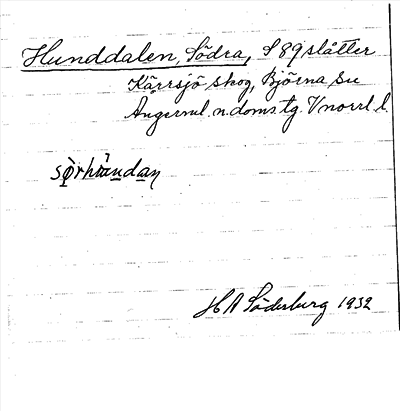 Hunddalen, Södra, S 89 slåtter
Kärrsjö skog, Björna sn
Ångerml. n. doms. tg. Vnorrl. l.
sörhunndan
H A Söderberg 1932